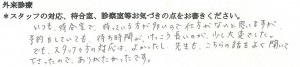 外来診療
*スタッフの対応、待合室、診察室等お気づきの点をお書きください。
いつも、待合室で、待っている方が多いので仕方がないと思いますが、
予約をしていても、待ち時間が、けっこう長いのが、少し大変でした。
でも、スタッフの方の対応は、よかったし、先生も、こちらの話をよく聞いて
下さったので、ありがたかったです。